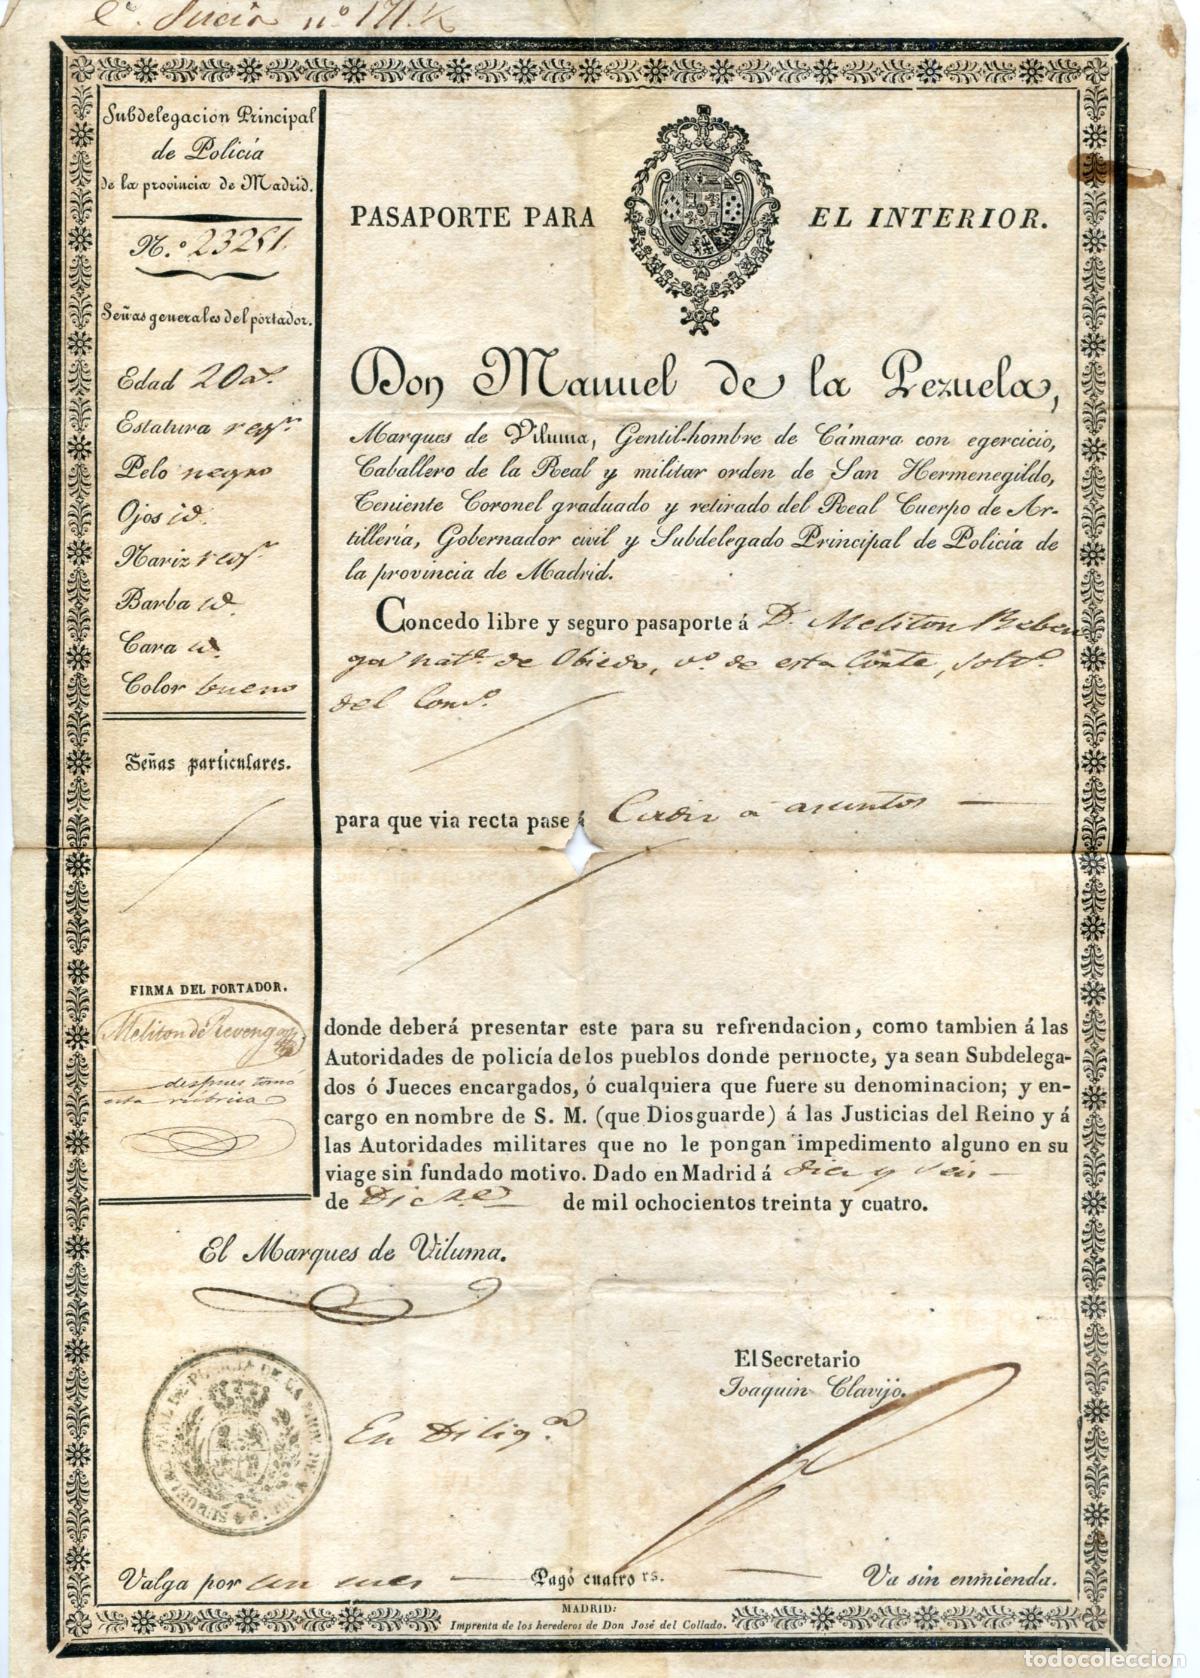 nº 171
Subdelegacion Principal
de Policía
de la provincia de Madrid.
N.º 23251
Señas generales del portador.
Edad 20 aˢ.
Estatura regʳ.
Pelo negro
Ojos id.
Nariz regʳ.
Barba id.
Cara id.
Color bueno
Señas particulares.
FIRMA DEL PORTADOR.
Meliton de Revenga
despues tomó
esta rúbrica
PASAPORTE PARA EL INTERIOR.
Don Manuel de la Pezuela,
Marques de Viluma, Gentil-hombre de Cámara con egercicio,
Caballero de la Real y militar orden de San Hermenegildo,
Teniente Coronel graduado y retirado del Real Cuerpo de Ar-
tillería, Gobernador civil y Subdelegado Principal de Policía de
la provincia de Madrid.
Concedo libre y seguro pasaporte á D. Meliton Reben
ga natˡ. de Obiedo, vº. de esta Corte, solᵗº.
del Comº.
para que via recta pase á Cadiz a asuntos
donde deberá presentar este para su refrendacion, como tambien á las
Autoridades de policía de los pueblos donde pernocte, ya sean Subdelega-
dos ó Jueces encargados, ó cualquiera que fuere su denominacion; y en-
cargo en nombre de S. M. (que Dios guarde) á las Justicias del Reino y á
las Autoridades militares que no le pongan impedimento alguno en su
viage sin fundado motivo. Dado en Madrid á diez y seis
de Dicᵇʳᵉ de mil ochocientos treinta y cuatro.
El Marques de Viluma.
El Secretario
Joaquin Clavijo.
En Diligª
Valga por un mes Pagó cuatro rs. Va sin enmienda.
MADRID:
Imprenta de los herederos de Don José del Collado.
todocoleccion